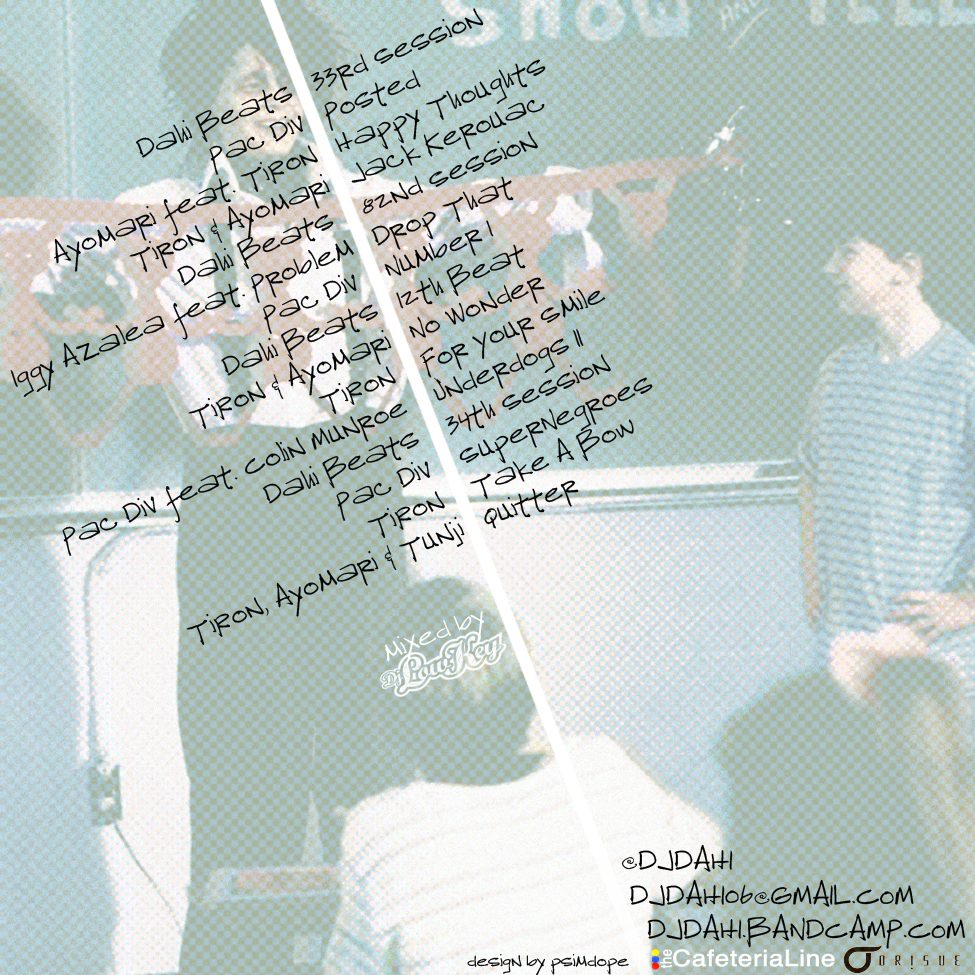 SHOW AND TELL
Dahi Beats 33rd session
Pac Div Posted
Ayomari feat. Tiron Happy Thoughts
Tiron & Ayomari Jack Kerouac
Dahi Beats 82nd session
Iggy Azalea feat. Problem Drop That
Pac Div Number 1
Dahi Beats 12th Beat
Tiron & Ayomari No Wonder
Tiron For Your Smile
Pac Div feat. Colin Munroe Underdogs II
Dahi Beats 34th session
Pac Div Supernegroes
Tiron Take A Bow
Tiron, Ayomari & Tunji Quitter
Mixed by
DJ LowKey
@DJDAHI
DJDAHI06@GMAIL.COM
DJDAHI.BANDCAMP.COM
design by psimdope
the CafeteriaLine
ORISUE